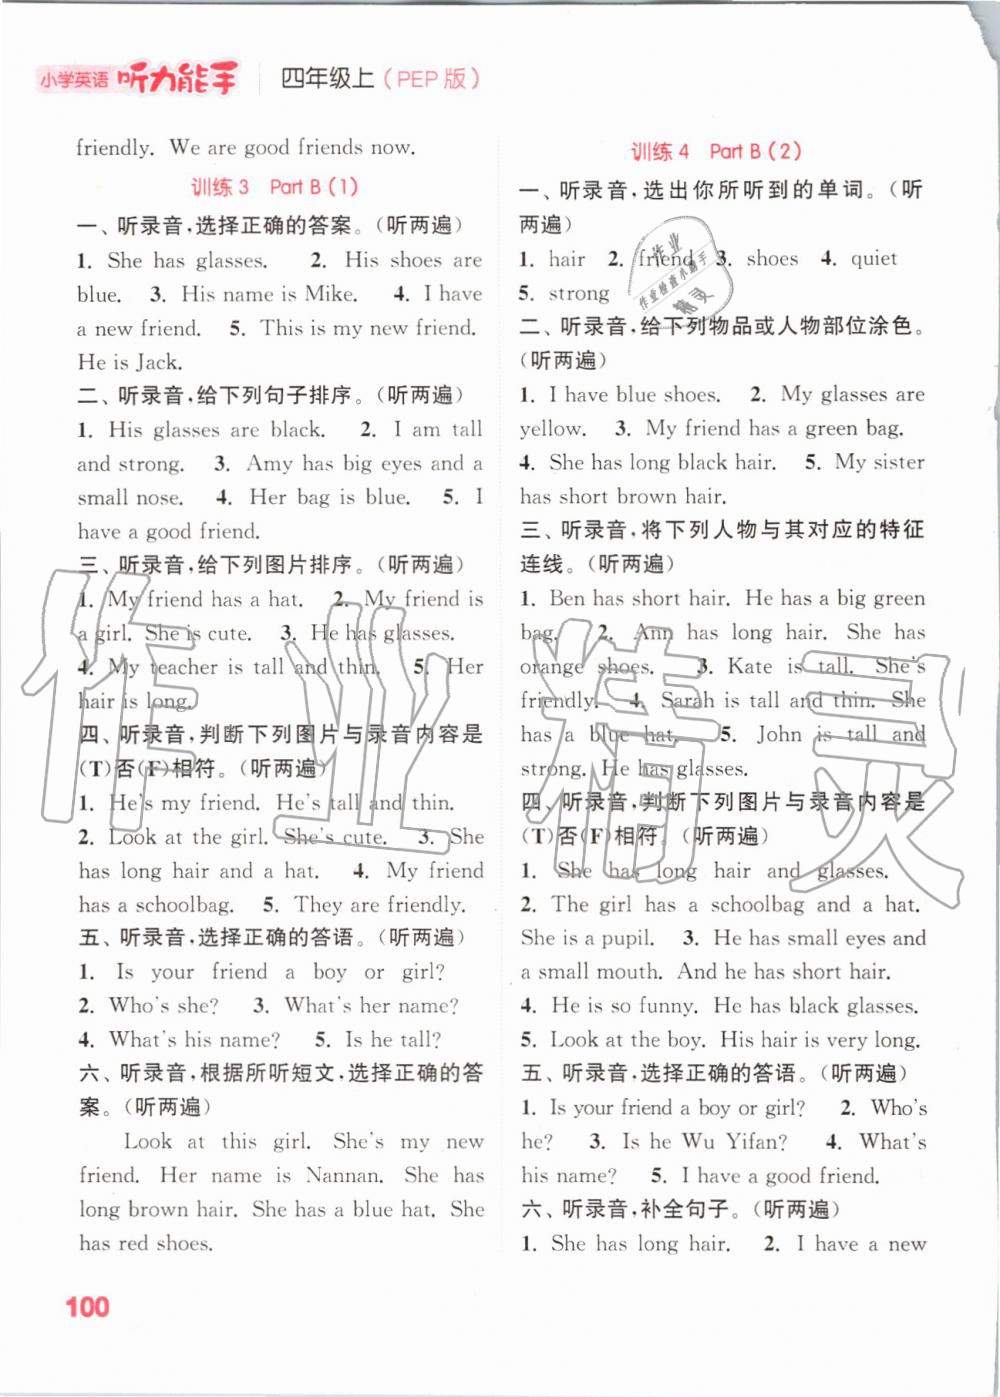 小学英语 听力能手 四年级上(PEP版)
friendly. We are good friends now.
训练3 Part B(1)
一、听录音,选择正确的答案。(听两遍)
1. She has glasses. 2. His shoes are
blue. 3. His name is Mike. 4. I have
a new friend. 5. This is my new friend.
He is Jack.
二、听录音,给下列句子排序。(听两遍)
1. His glasses are black. 2. I am tall
and strong. 3. Amy has big eyes and a
small nose. 4. Her bag is blue. 5. I
have a good friend.
三、听录音,给下列图片排序。(听两遍)
1. My friend has a hat. 2. My friend is
a girl. She is cute. 3. He has glasses.
4. My teacher is tall and thin. 5. Her
hair is long.
四、听录音,判断下列图片与录音内容是
(T)否(F)相符。(听两遍)
1. He's my friend. He's tall and thin.
2. Look at the girl. She's cute. 3. She
has long hair and a hat. 4. My friend
has a schoolbag. 5. They are friendly.
五、听录音,选择正确的答语。(听两遍)
1. Is your friend a boy or girl?
2. Who's she? 3. What's her name?
4. What's his name? 5. Is he tall?
六、听录音,根据所听短文,选择正确的答
案。(听两遍)
Look at this girl. She's my new
friend. Her name is Nannan. She has
long brown hair. She has a blue hat. She
has red shoes.
100
训练4 Part B(2)
一、听录音,选出你所听到的单词。(听
两遍)
1. hair 2. friend 3. shoes 4. quiet
5. strong
二、听录音,给下列物品或人物部位涂色。
(听两遍)
1. I have blue shoes. 2. My glasses are
yellow. 3. My friend has a green bag.
4. She has long black hair. 5. My sister
has short brown hair.
三、听录音,将下列人物与其对应的特征
连线。(听两遍)
1. Ben has short hair. He has a big green
bag. 2. Ann has long hair. She has
orange shoes. 3. Kate is tall. She's
friendly. 4. Sarah is tall and thin. She
has a blue hat. 5. John is tall and
strong. He has glasses.
四、听录音,判断下列图片与录音内容是
(T)否(F)相符。(听两遍)
1. She has long hair and glasses.
2. The girl has a schoolbag and a hat.
She is a pupil. 3. He has small eyes and
a small mouth. And he has short hair.
4. He is so funny. He has black glasses.
5. Look at the boy. His hair is very long.
五、听录音,选择正确的答语。(听两遍)
1. Is your friend a boy or girl? 2. Who's
he? 3. Is he Wu Yifan? 4. What's
his name? 5. I have a good friend.
六、听录音,补全句子。(听两遍)
1. She has long hair. 2. I have a new
作业
作业检查小助手
精灵
作业精灵